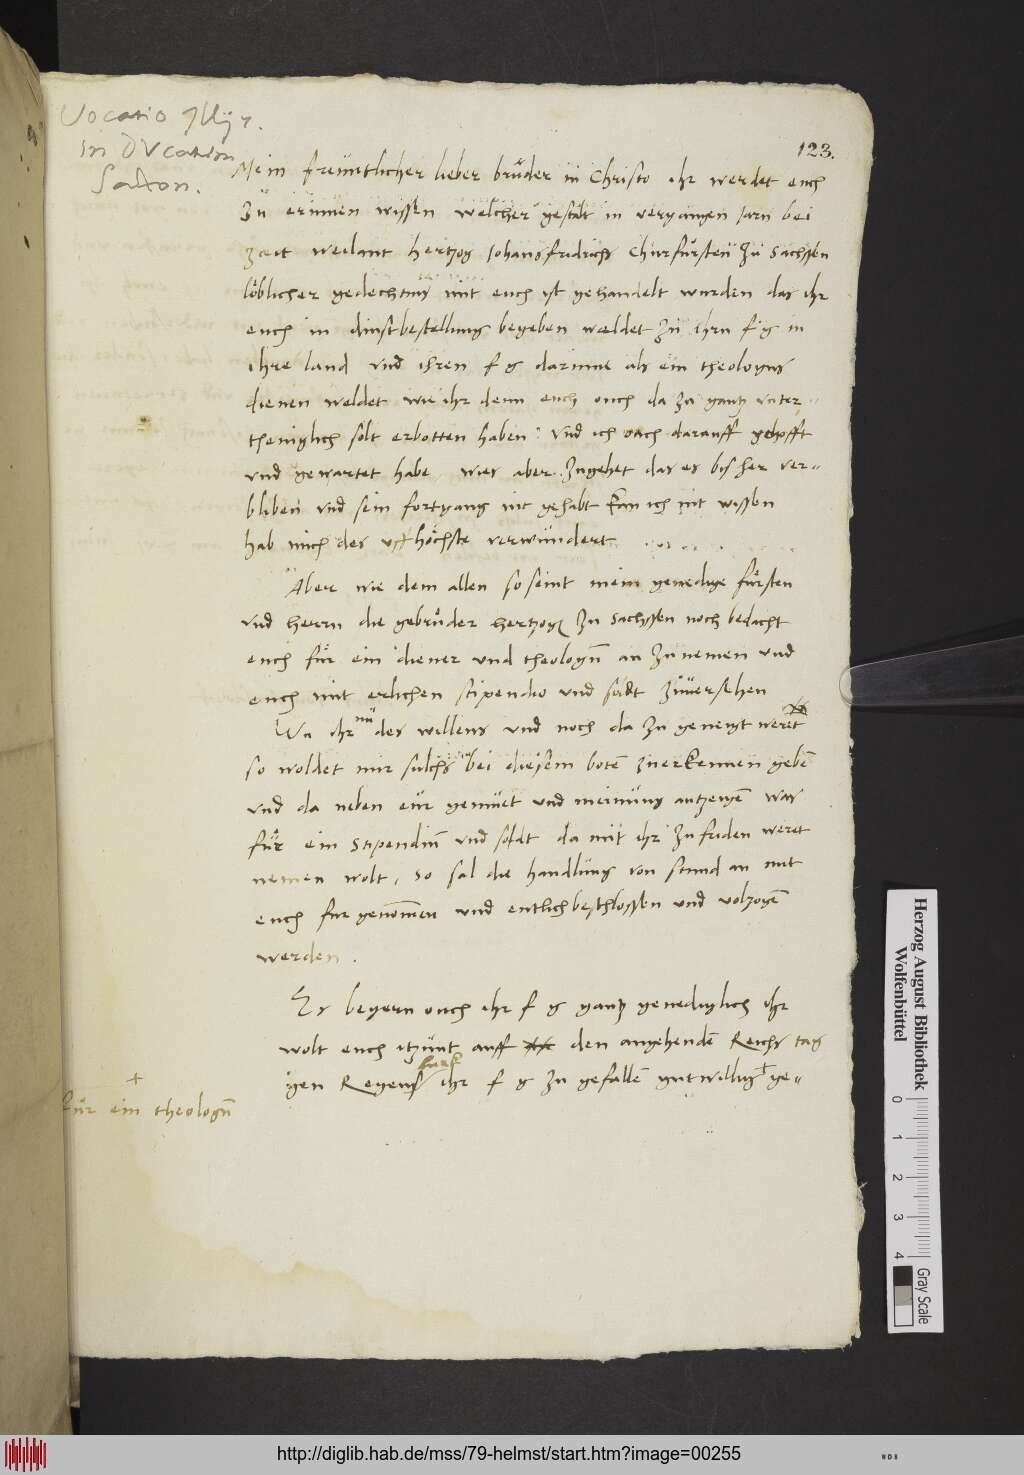 Vocatio Illyr.
in DVcatum
Saxon.
123.
Mein freuntlicher lieber brüder in Christo ihr werdet euch
zu erinnen wissen welcher gestalt in vergangen Jarn bei
zeit weilant hertzog Johansfridrichs Churfürsten zu Sachssen
löblicher gedechtnis mit euch ist gehandelt wurden das ihr
euch in dinstbestellung begeben woldet zu ihrn f g in
ihre land und ihren f g darinne als ein theologus
dienen woldet wie ihr denn euch ouch da zu gantz unter
theniglich solt erbotten haben: und ich ouch darauff gehofft
und gewartet habe, wies aber zugehet das es bis her ver-
bliben und sein fortgang nit gehabt kan ich nit wissen
hab mich des uffhöchste verwundert
Aber wie dem allen so seint mein genedige fürsten
und herrn die gebrüder hertzogen zu Sachssen noch bedacht
euch für ein diener und theologum an zunemen und
euch mit erlichen stipendio und soldt zuversehen
Wu ihr nu des willens und noch da zu geneigt weret
so woldet mir sulchs bei diesem boten zuerkennen geben
und da neben eur gemuet und meinung antzeigen was
für ein stipendium und soldt da mit ihr zufriden weret
nemen wolt, so sal die handlung von stund an mit
euch fur genommen und entlich beschlossen und volzogen
werden.
Es begern ouch ihr f g gantz genediglich ihr
wolt euch itzunt auff den angehenden Reichs tag
gen Regenspurk ihr f g zu gefallen gutwillig + ge-
+
für ein theologum
Herzog August Bibliothek
Wolfenbüttel
0 1 2 3 4
Gray Scale
http://diglib.hab.de/mss/79-helmst/start.htm?image=00255
WDB